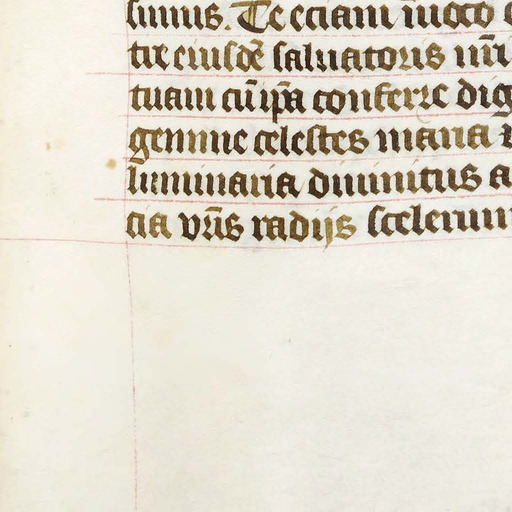 simus. Te eciam in
trix eiusdē saluatoris nr̄i
tuam cū ip̄a conferre dig
gemine celestes maria
luminaria diuinitus a
cia vr̄is radijs scelerum